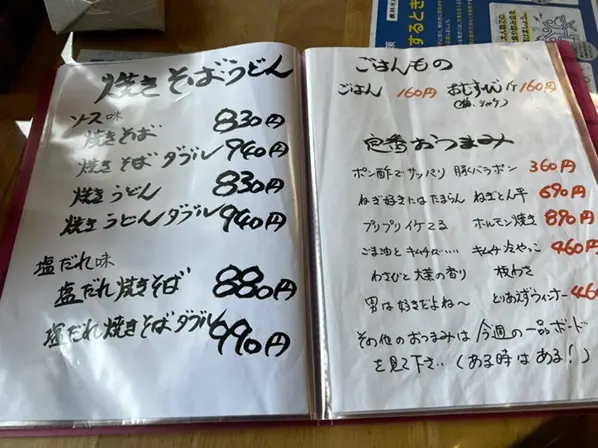 焼きそばうどん
ソース味
焼きそば 830円
焼きそばダブル 940円
焼きうどん 830円
焼きうどんダブル 940円
塩だれ味
塩だれ焼きそば 880円
塩だれ焼きそばダブル 990円
ごはんもの
ごはん 160円 おむすび 1ケ 160円
(梅、シャケ)
定番おつまみ
ポン酢でサッパリ 豚バラポン 360円
ねぎ好きにはたまらん ねぎとん平 690円
プリプリイケてる ホルモン焼き 890円
ごま油とキムチな…… キムチ冷やっこ 460円
わさびと大葉の香り 板わさ
男は好きだよね〜 とりあえずウィンナー 460
その他のおつまみは今週の一品ボード
を見て下さい(ある時はある!)
するとき